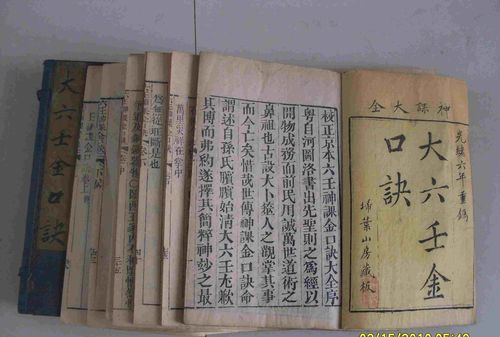 神課大全
光緒六年重鐫
大六壬金
口訣
埽葉山房藏板
校正京本六壬神課金口訣大全序
粵自河圖洛書出先聖則之為經以
開物成務而前民用誠萬世道術之
鼻祖也古設大卜筮人之觀掌其事
而今亡矣惜說世傳神課金口訣命
謂述自孫氏臏始清大六壬尤歉
其博而弗約遂擇其簡粹神玅之最
萬里災祥在掌中
大六壬金口訣